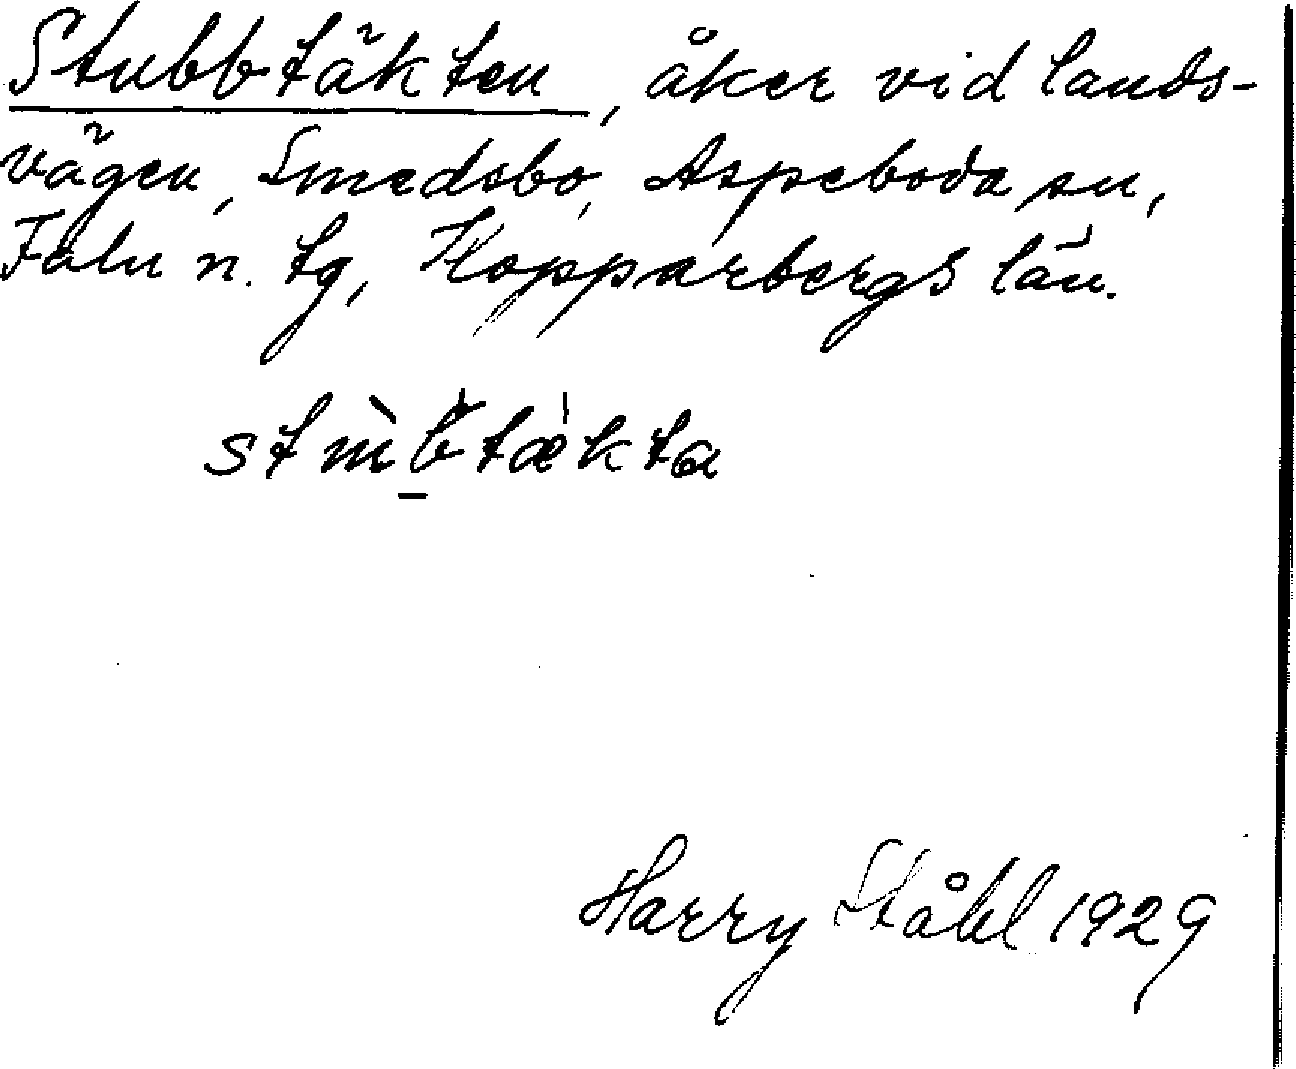 Stubbtäkten, åker vid lands-
vägen, Smedsbo, Aspeboda sn,
Falu n. tg, Kopparbergs län.
Harry Ståhl 1929